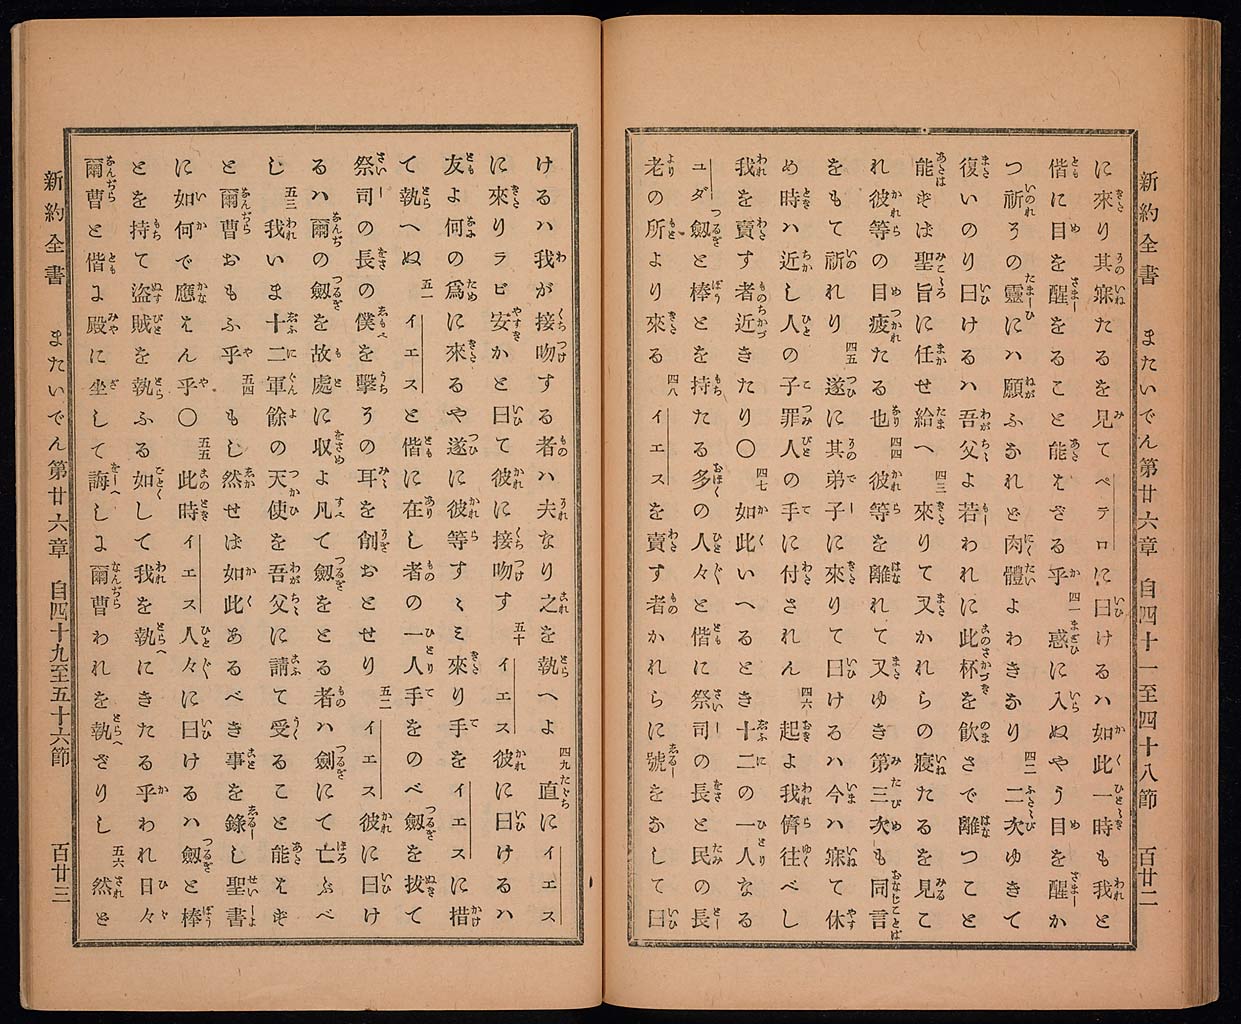 新約全書　またいでん第廿六章　自四十一至四十八節　百廿二
に來り其寐たるを見てペテロに曰けるハ如此一時も我と
偕に目を醒をること能ざる乎 四一 惑に入ぬやう目を醒か
つ祈ろの靈にハ願ふなれど肉體よわきなり 四二 二次ゆきて
復いのり曰けるハ吾父よ若われに此杯を飮さで離つこと
能ずば聖旨に任せ給へ 四三 來りて又かれらの寢たるを見こ
れ彼等の目疲たる也 四四 彼等を離れて又ゆき第三次も同言
をもて祈れり 四五 遂に其弟子に來りて曰けるハ今ハ寐て休
め時ハ近し人の子罪人の手に付されん 四六 起よ我儕往べし
我を賣す者近きたり〇 四七 如此いへるとき十二の一人なる
ユダ劔と棒とを持たる多の人々と偕に祭司の長と民の長
老の所より來る 四八 イエスを賣す者かれらに號をなして曰
けるハ我が接吻する者ハ夫なり之を執へよ 四九 直にイエス
に來りラビ安かと曰て彼に接吻す 五十 イエス彼に曰けるハ
友よ何の爲に來るや遂に彼等すゝみ來り手をイエスに措
て執へぬ 五一 イエスと偕に在し者の一人手をのべ劔を拔て
祭司の長の僕を擊ろの耳を削おとせり 五二 イエス彼に曰け
るハ爾の劔を故處に収よ凡て劔をとる者ハ劔にて亡ぶべ
し 五三 我いま十二軍餘の天使を吾父に請て受ること能ず
と爾曹おもふ乎 五四 もし然せば如此あるべき事を錄し聖書
に如何で應えん乎〇 五五 此時イエス人々に曰けるハ劔と棒
とを持て盜賊を執ふる如して我を執にきたる乎われ日々
爾曹と偕に殿に坐して誨しに爾曹われを執ざりし 五六 然ど
新約全書　またいでん第廿六章　自四十九至五十六節　百廿三